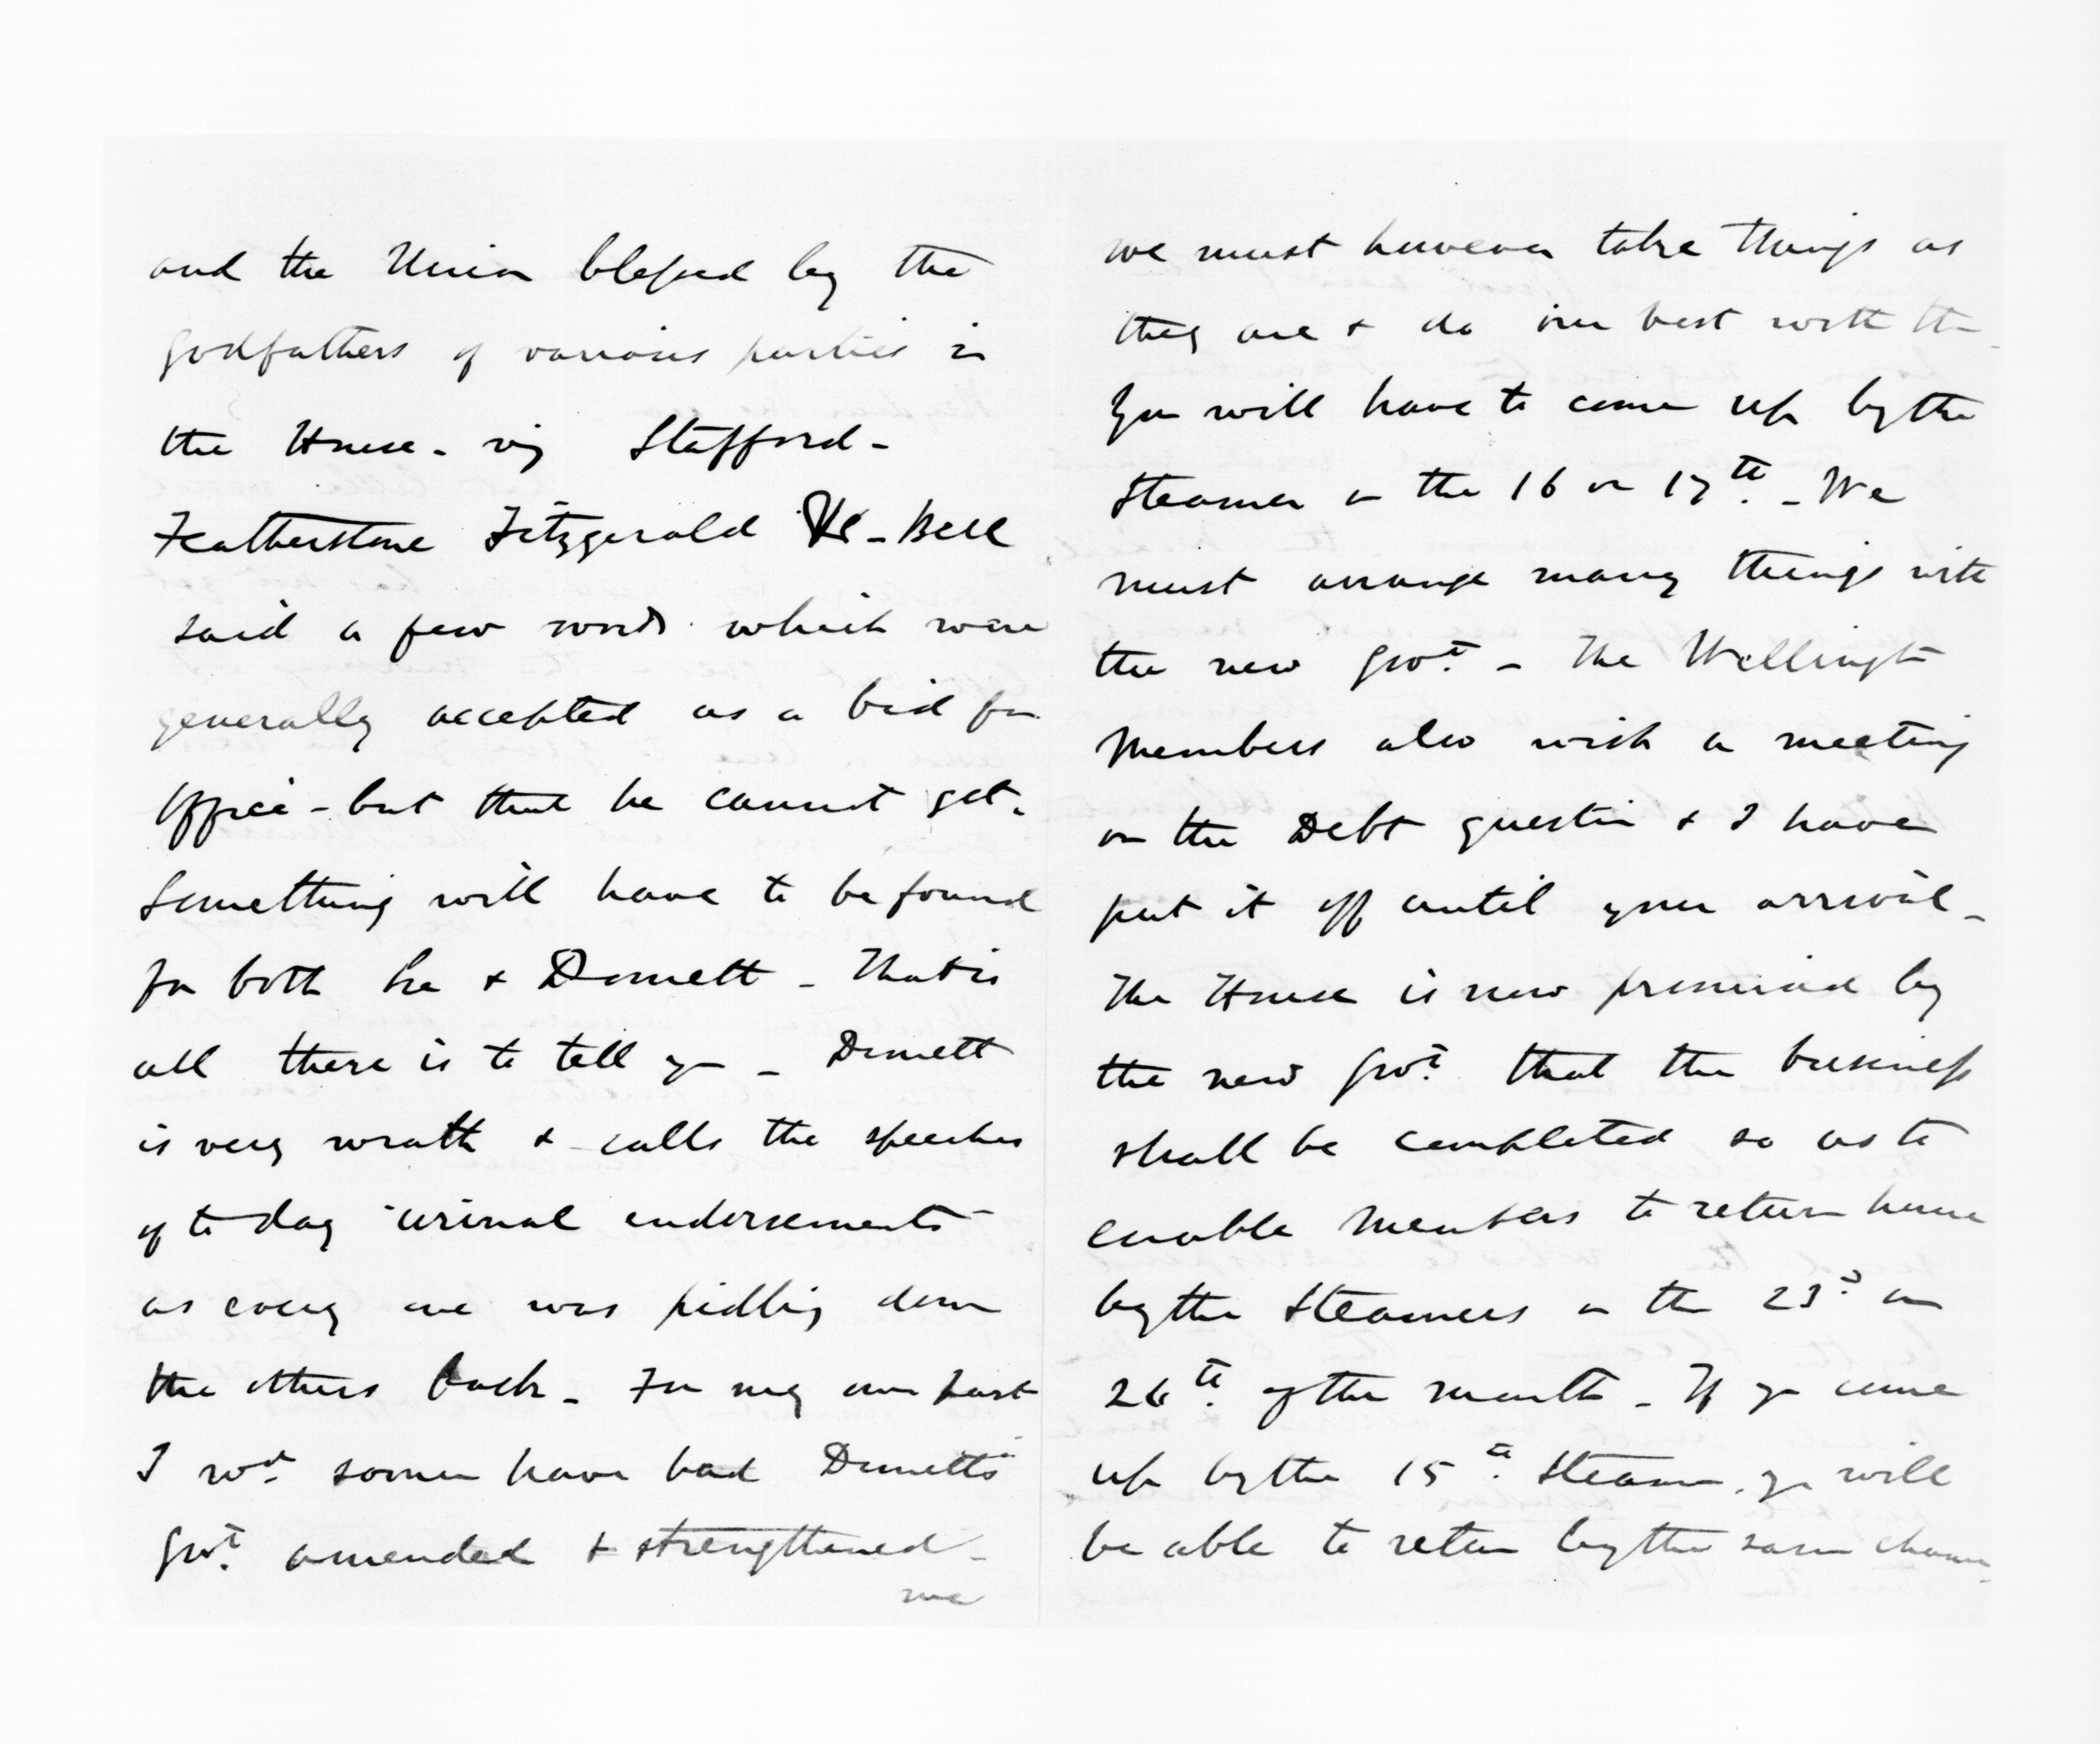 and the Union blessed by the
godfathers of various parties in
the House - viz Stafford -
Featherstone Fitzgerald &c - Bell
said a few words which were
generally accepted as a bid for
office - but that he cannot get.
Something will have to be found
for both he & Domett - That is
all there is to tell you - Domett
is very wrath & calls the speeches
of to day "urinal endorsements"
as every one was pidling down
the others back - For my own part
I wod. sooner have had Domett's
Govt. amended & strengthened -
we
we must however take things as
they are & do our best with th
You will have to come up by the
Steamer on the 16 or 17th. - We
must arrange many things with
the new Govt. - The Wellington
Members also wish a meeting
on the Debt question & I have
put it off until your arrival -
The House is now promised by
the new Govt. that the business
shall be completed so as to
enable Members to return home
by the Steamers on the 23d on
26th. of the month - If you come
up by the 15th. Steamer you will
be able to return by the same